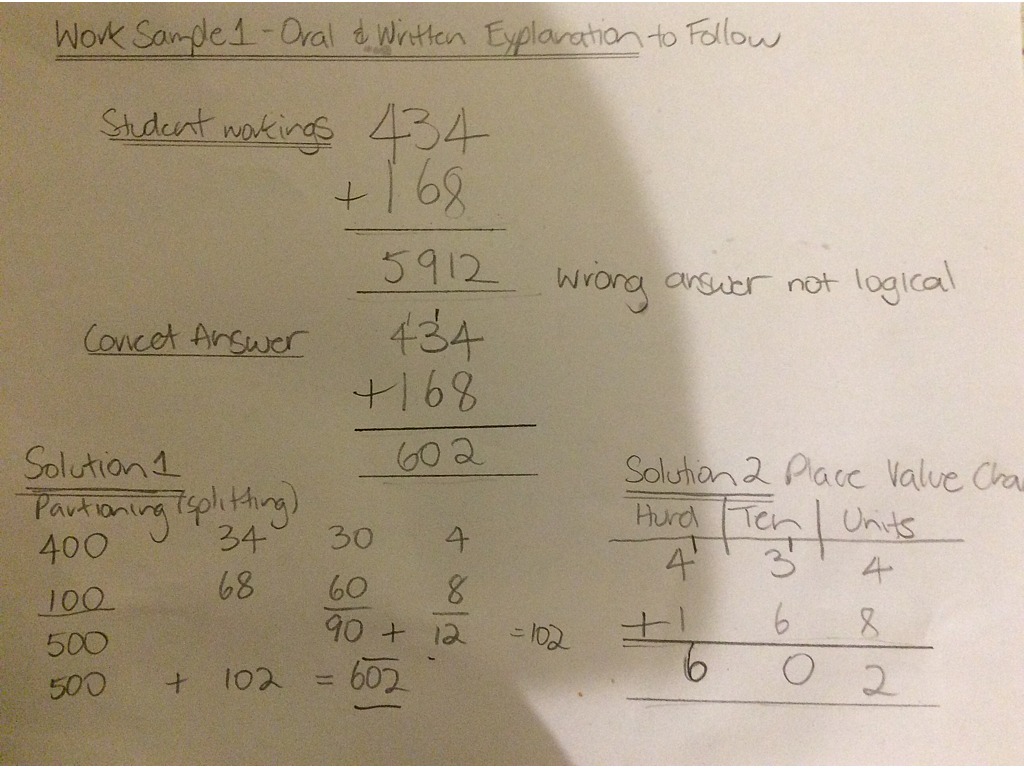 Work Sample 1 - Oral & Written Explanation to Follow
Student workings 434
+ 168
5912 wrong answer not logical
Correct Answer 4'3'4
+ 168
602
Solution 1
Partioning (splitting)
400 34 30 4
100 68 60 8
500 90 + 12 = 102
500 + 102 = 602
Solution 2 Place Value Cha
Hurd | Ten | Units
4' 3' 4
+ 1 6 8
6 0 2